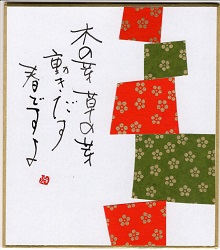 木の芽草の芽
動きだす
春ですよ